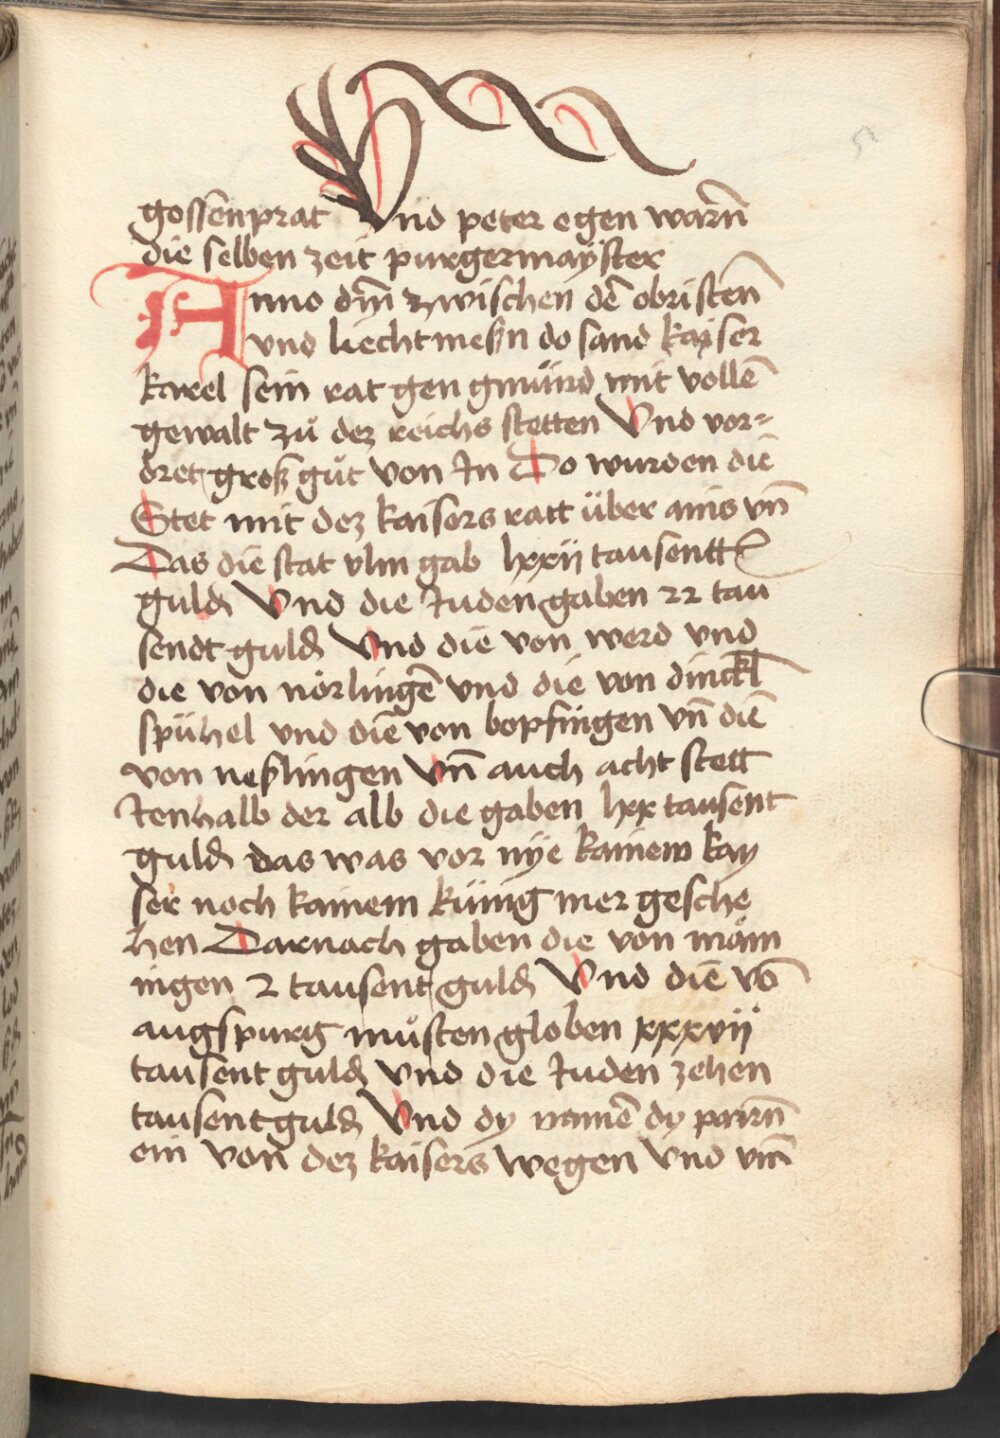 52
gossenprat Vnd peter egen warñ
die selben zeit purgermayster
Anno dm̄ zwischen dē obristen̄
vnd liechtmeßn do sand kayser
karel sein rat gen gmünd mit vollē
gewalt zů dez reichs stetten Vnd vor=
dret groß gůt von In Do wurden die
Stet mit dez kaisers ratt über ains vn̄
Das die stat vlm gab lxxij tausentt
guld Vnd die Juden gaben 22 tau
sendt guld Vnd die von werd vnd
die von nörlingē vnd die von dinckl
spühel vnd die von bopfingen vn̄ die
von neßlingen Vn̄ auch acht stett
Jenhalb der alb die gaben lxx tausent
guld das was vor nye kainem kay
ser noch kainem künig mer gesche
hen Darnach gaben die von mäm
ingen 2 tausent guld Vnd die vō
augspurg můsten globen xxxvij
tausent guld vnd die Juden zehen
tausent guld Vnd dy namē dy
ein von dez kaisers wegen vnd vm̄